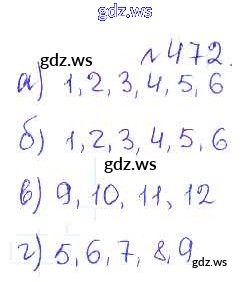 gdz.ws
№472.
gdz.ws
а) 1, 2, 3, 4, 5, 6
б) 1, 2, 3, 4, 5, 6
gdz.ws
в) 9, 10, 11, 12
gdz.ws
г) 5, 6, 7, 8, 9
gdz.ws